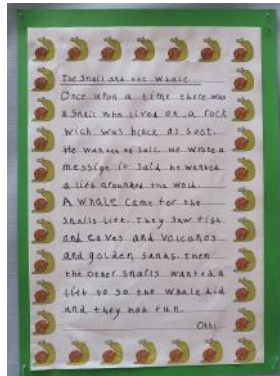 The Snail and the Whale
Once upon a time there was
a snail who lived on a rock
wich was black as soot.
He wanted to sail. He wrote a
messige it said he wanted
a lift arounded the wold.
A whale came for the
snails lift. They saw fish
and caves and volcanos
and golden sands. Then
the other snails wanted a
lift to so the whale did
and they had fun.